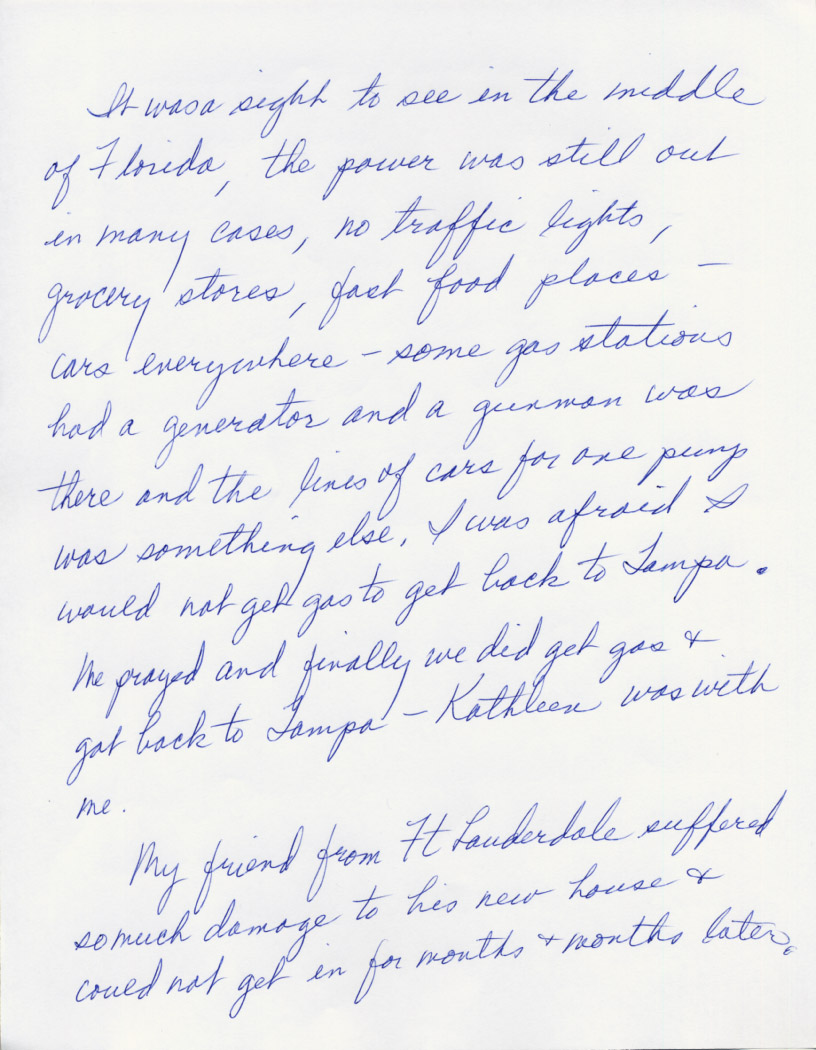 It was a sight to see in the middle
of Florida, the power was still out
in many cases, no traffic lights,
grocery stores, fast food places -
cars everywhere - some gas stations
had a generator and a gunman was
there and the lines of cars for one pump
was something else. I was afraid I
would not get gas to get back to Tampa.
We prayed and finally we did get gas &
got back to Tampa - Kathleen was with
me.
My friend from Ft Lauderdale suffered
so much damage to his new house &
could not get in for months & months later.